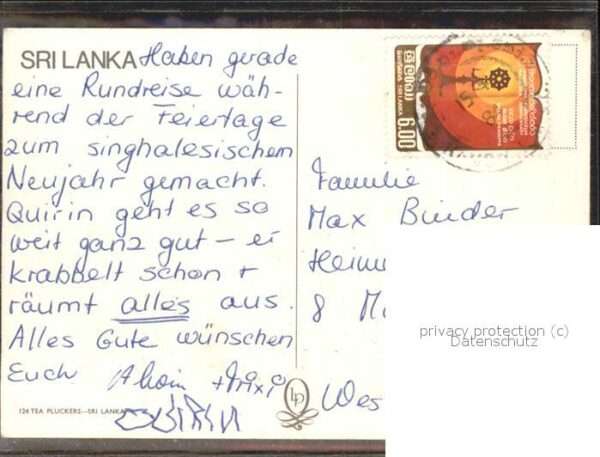 SRI LANKA Haben gerade
eine Rundreise wäh-
rend der Feiertage
zum singhalesischem
Neujahr gemacht.
Quirin geht es so
weit ganz gut – er
krabbelt schon +
räumt alles aus.
Alles Gute wünschen
Euch
124 TEA PLUCKERS—SRI LANKA
ශ්‍රී ලංකා
SRI LANKA
6.00
Familie
Max Binder
8
lp
privacy protection (c)
Datenschutz